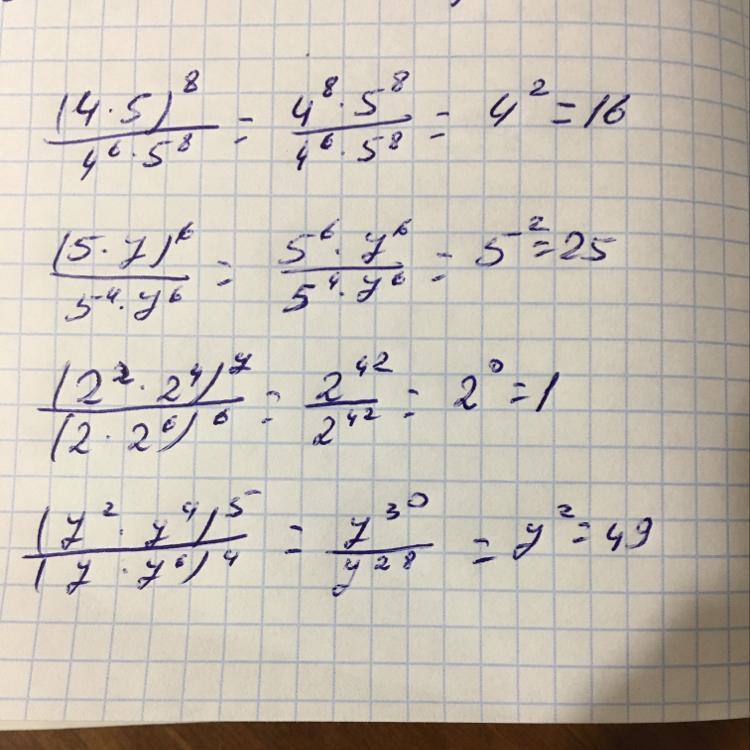 (4·5)⁸/(4⁶·5⁸) = (4⁸·5⁸)/(4⁶·5⁸) = 4² = 16
(5·7)⁶/(5⁴·7⁶) = (5⁶·7⁶)/(5⁴·7⁶) = 5² = 25
(2²·2⁴)⁷/(2·2⁶)⁶ = 2⁴²/2⁴² = 2⁰ = 1
(7²·7⁴)⁵/(7·7⁶)⁴ = 7³⁰/7²⁸ = 7² = 49